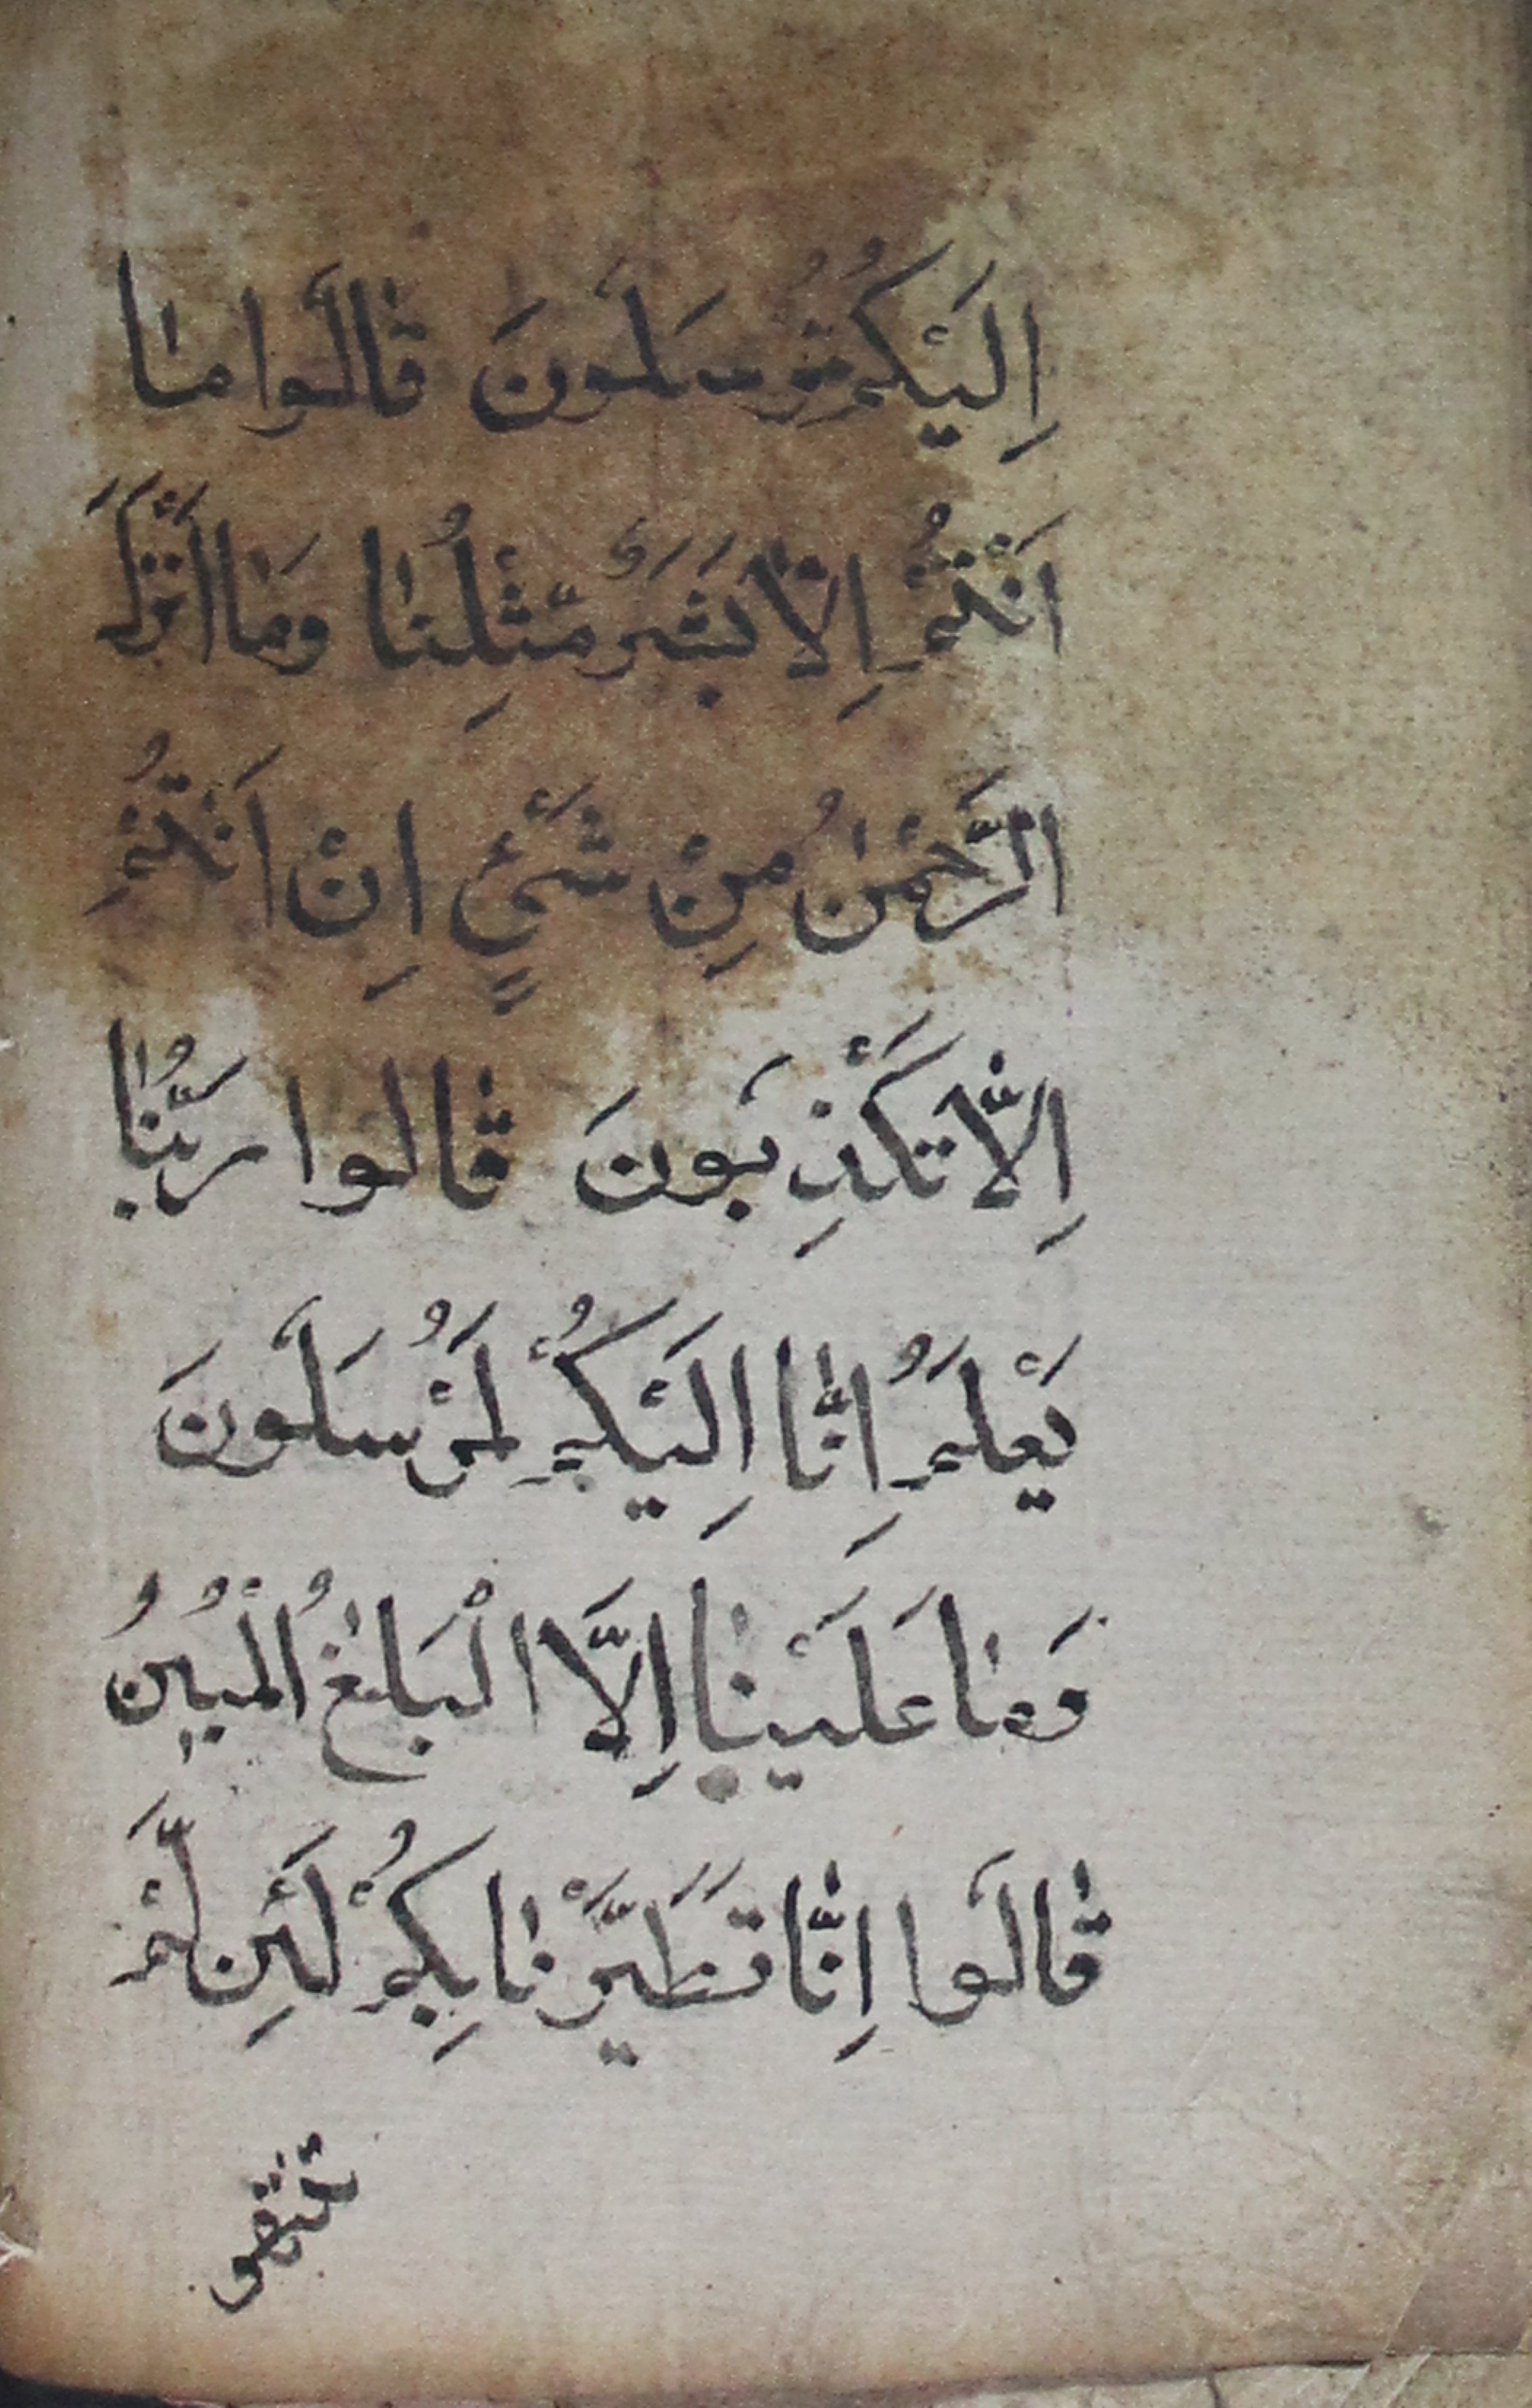 اِلَيْكُمْ مُرْسَلُونَ قَالُوا مَا
اَنْتُمْ اِلَّا بَشَرٌ مِّثْلُنَا وَمَا اَنْزَلَ
الرَّحْمٰنُ مِنْ شَيْءٍ اِنْ اَنْتُمْ
اِلَّا تَكْذِبُونَ قَالُوا رَبُّنَا
يَعْلَمُ اِنَّا اِلَيْكُمْ لَمُرْسَلُونَ
وَمَا عَلَيْنَا اِلَّا الْبَلٰغُ الْمُبِينُ
قَالُوا اِنَّا تَطَيَّرْنَا بِكُمْ لَئِنْ لَّمْ
تنتهو